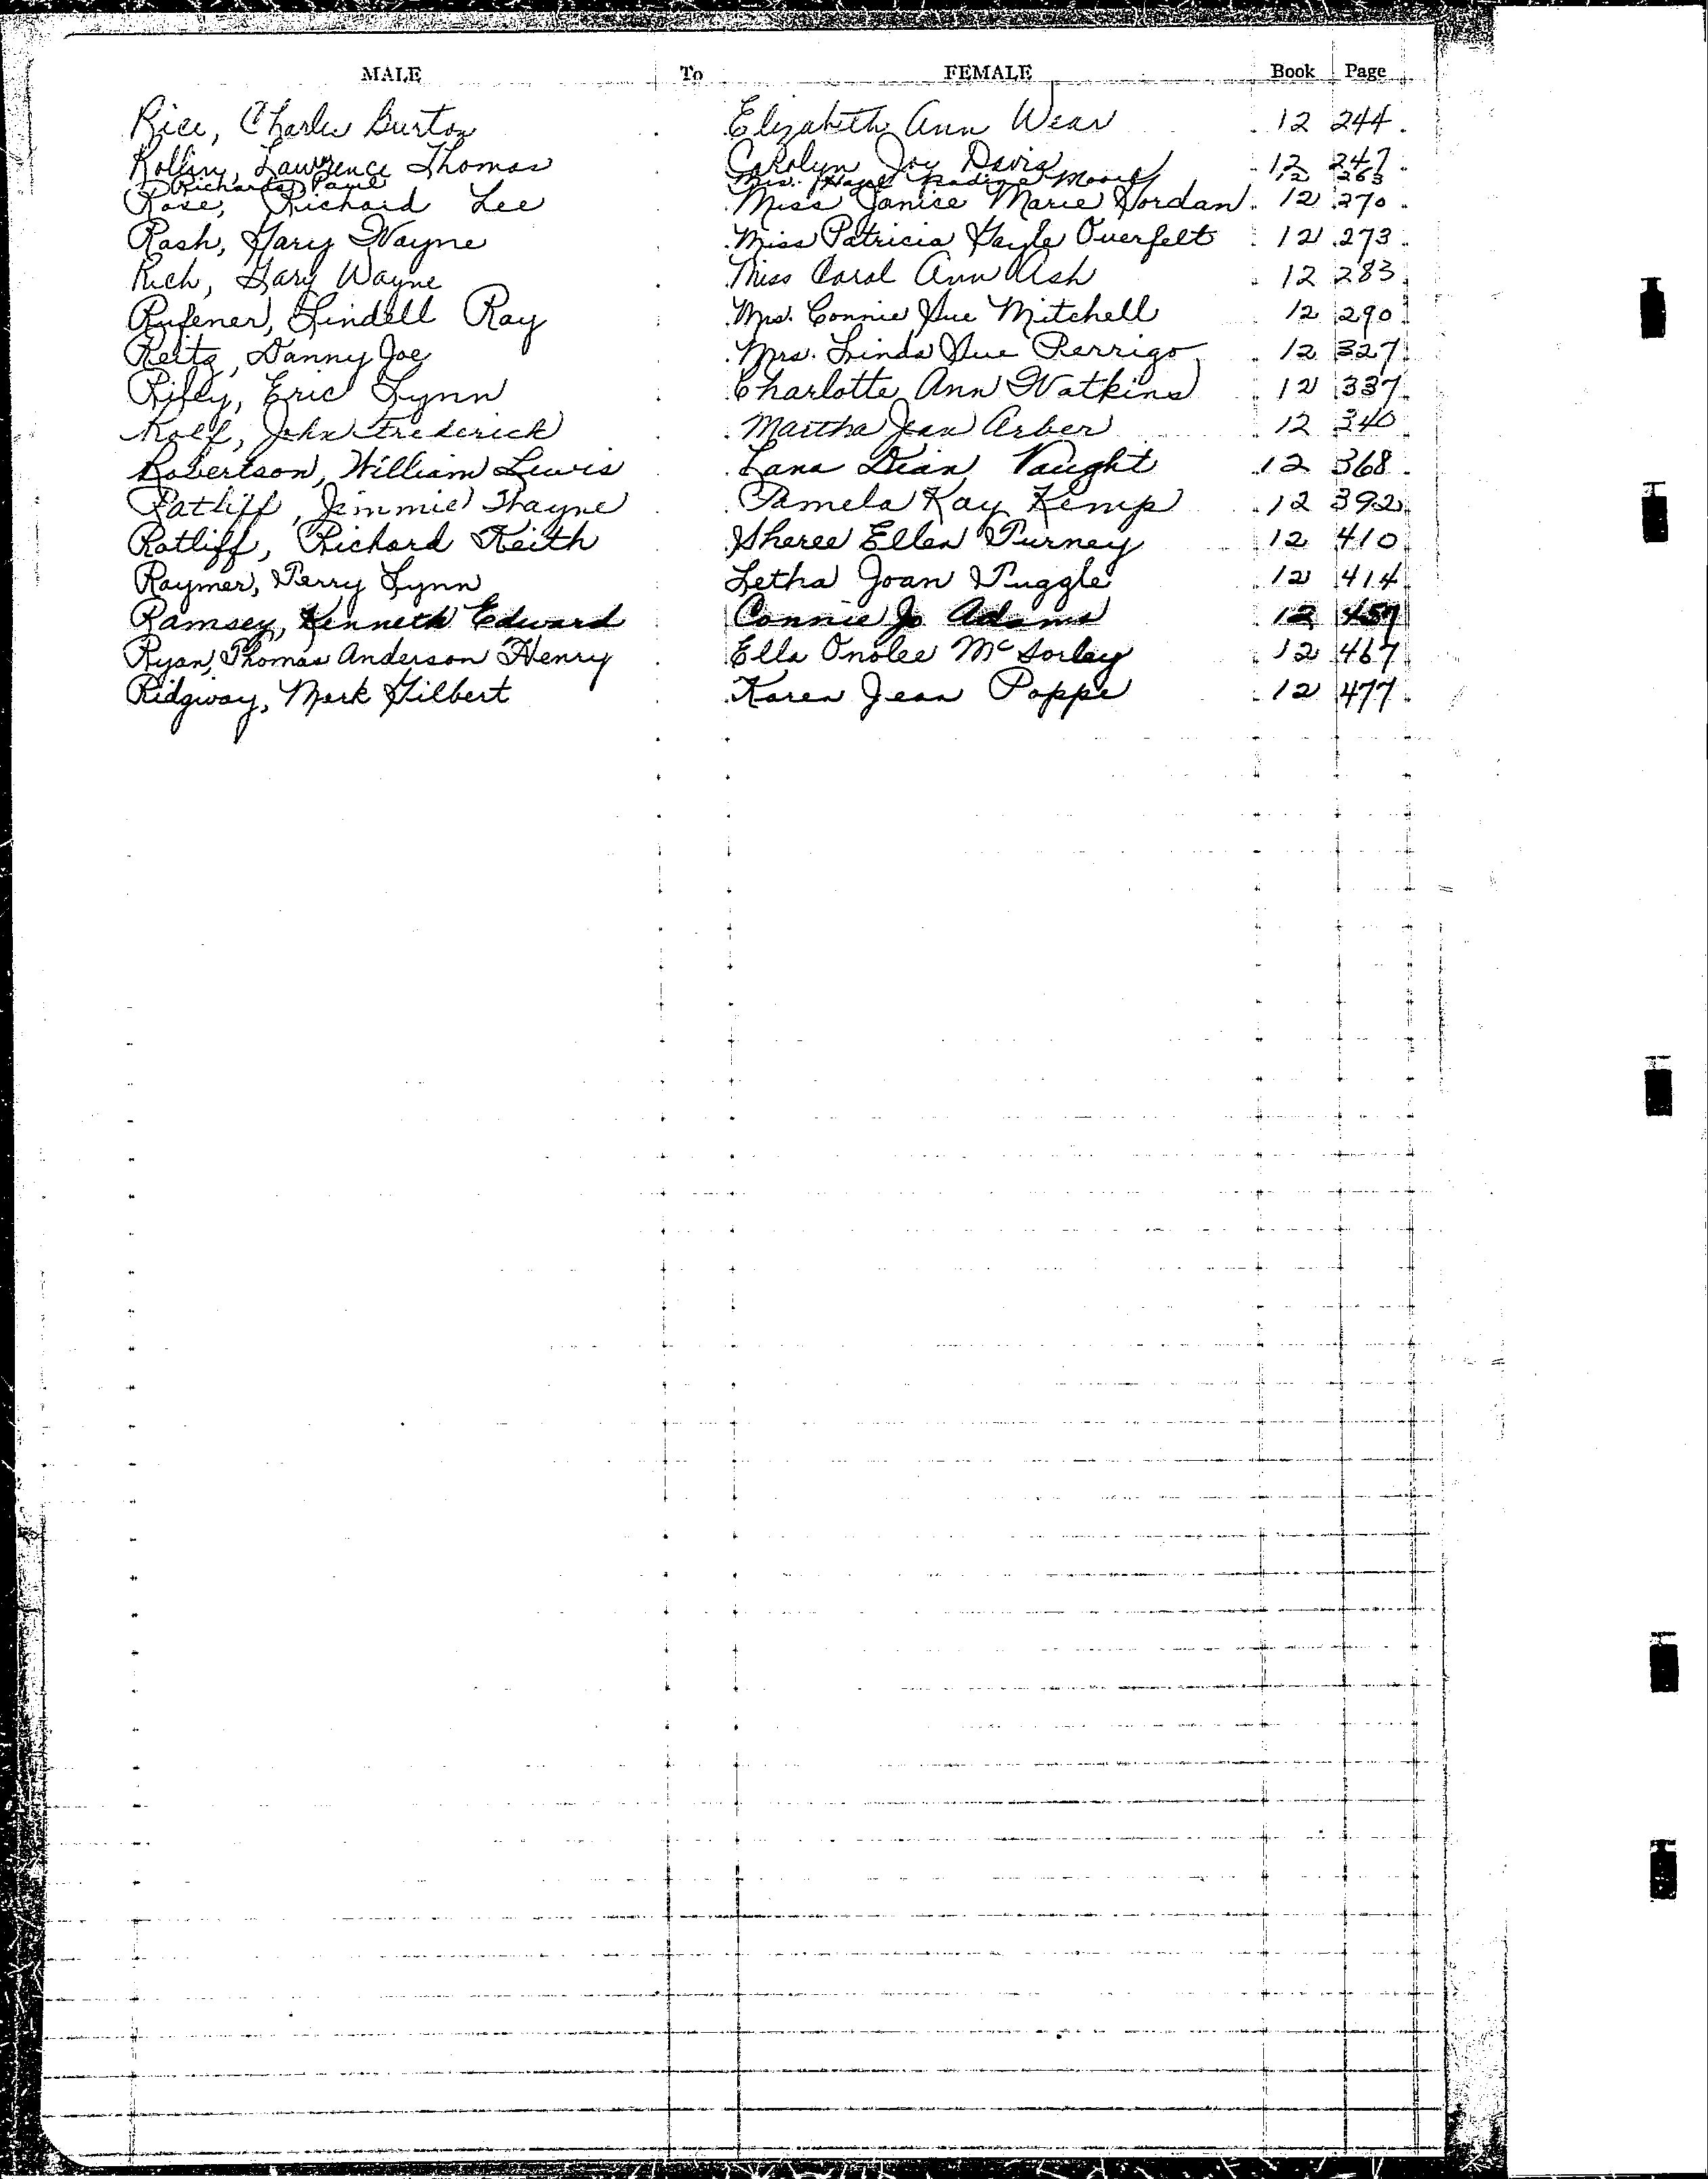 MALE To FEMALE Book Page
Rice, Charles Burton Elizabeth Ann Wear 12 244
Rollins, Lawrence Thomas Carolyn Joy Davis 12 247
Richards, Paul Mrs. Hazel Nadine Moore 12 263
Rose, Richard Lee Miss Janice Marie Jordan 12 270
Rash, Gary Wayne Miss Patricia Gayle Overfelt 12 273
Rich, Gary Wayne Miss Carol Ann Ash 12 283
Rufener, Lindell Ray Mrs. Connie Sue Mitchell 12 290
Reitz, Danny Joe Mrs. Linda Sue Perrigo 12 327
Rifey, Eric Lynn Charlotte Ann Watkins 12 337
Rolf, John Frederick Martha Jean Arber 12 340
Robertson, William Lewis Lana Dian Vaught 12 368
Ratliff, Jimmie Thayne Pamela Kay Kemp 12 392
Ratliff, Richard Keith Sheree Ellen Turney 12 410
Raymer, Perry Lynn Letha Joan Tuggle 12 414
Ramsey, Kenneth Edward Connie Jo Adams 12 457
Ryan, Thomas Anderson Henry Ella Onolee McSorley 12 467
Ridgway, Mark Gilbert Karen Jean Poppe 12 477